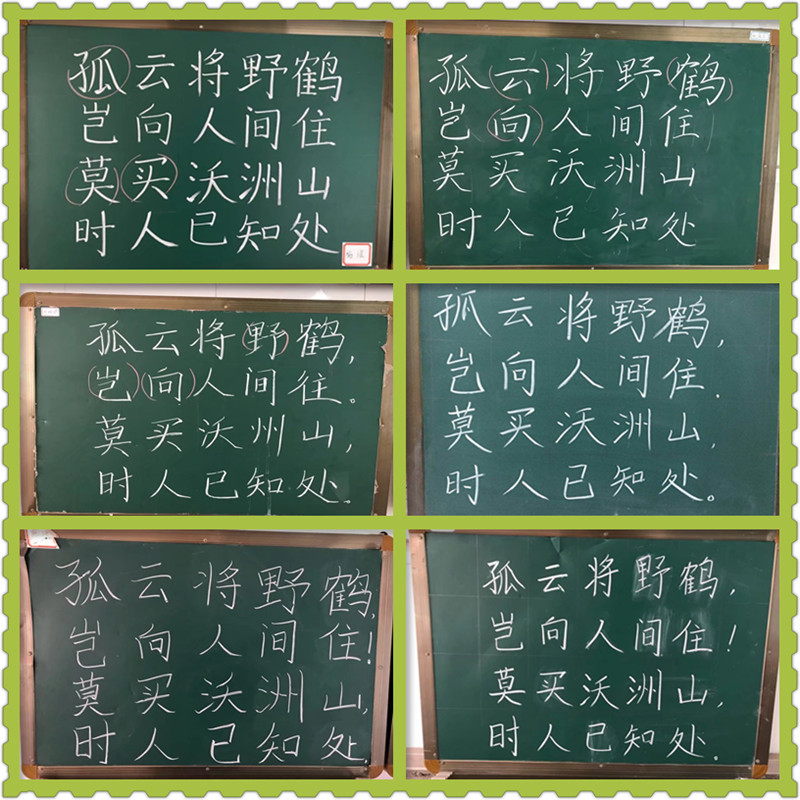 孤云将野鹤
岂向人间住
莫买沃洲山
时人已知处
孤云将野鹤
岂向人间住
莫买沃洲山
时人已知处
孤云将野鹤，
岂向人间往。
莫买沃州山，
时人已知处。
孤云将野鹤，
岂向人间住．
莫买沃洲山，
时人已知处。
孤云将野鹤，
岂向人间住！
莫买沃洲山，
时人已知处
孤云将野鹤，
岂向人间住！
莫买沃洲山，
时人已知处。